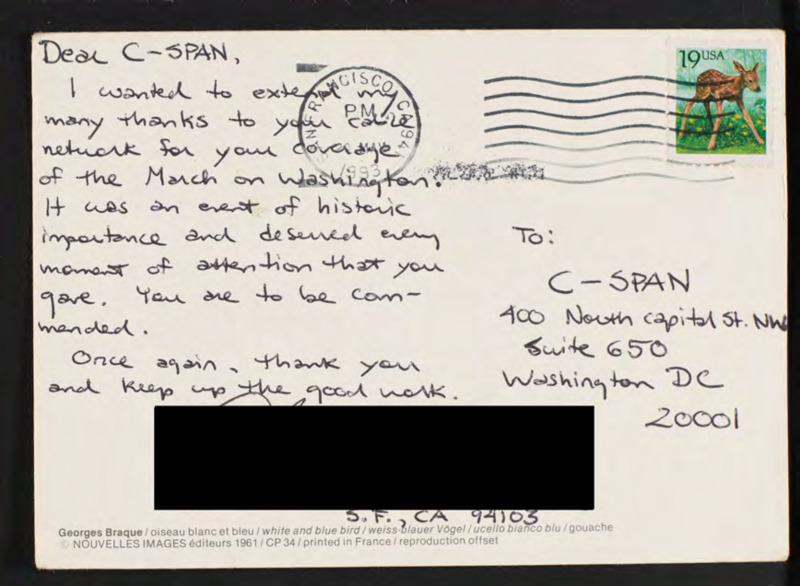 Dear C-SPAN,
I wanted to extend my
many thanks to your cable
network for your coverage
of the March on Washington.
It was an event of historic
importance and deserved every
moment of attention that you
gave. You are to be com-
mended.
Once again, thank you
and keep up the good work.
SAN FRANCISCO, CA 94
PM
1993
19USA
To:
C-SPAN
400 North Capitol St. NW
Suite 650
Washington DC
20001
S.F., CA 94103
Georges Braque / oiseau blanc et bleu / white and blue bird / weiss-blauer Vögel / ucello bianco blu / gouache
© NOUVELLES IMAGES éditeurs 1961 / CP 34 / printed in France / reproduction offset